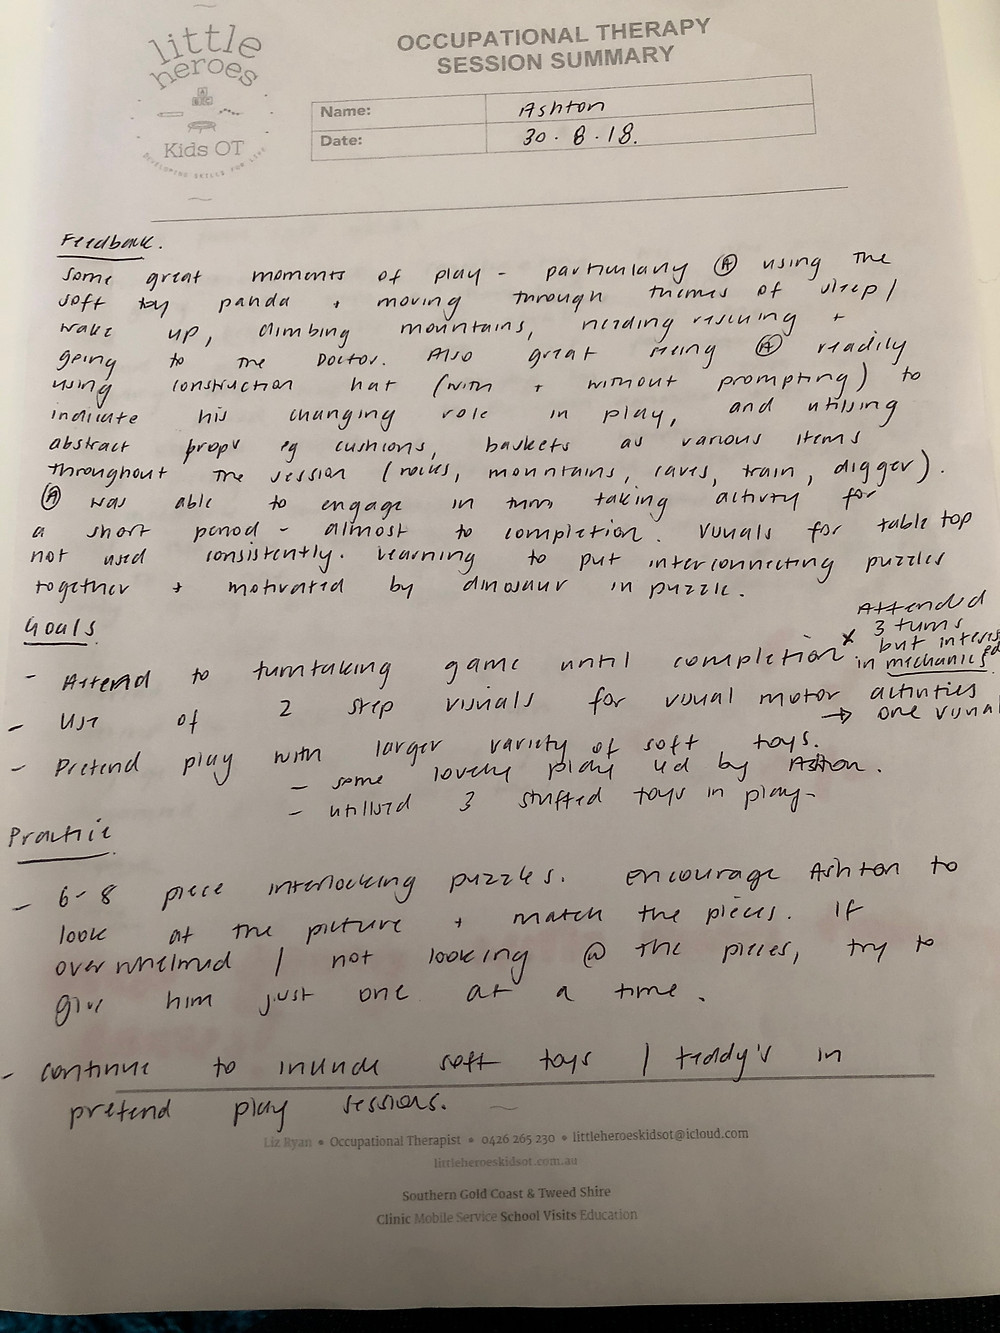 little
heroes
Kids OT
DEVELOPING SKILLS FOR LIFE
OCCUPATIONAL THERAPY
SESSION SUMMARY
Name: Ashton
Date: 30.8.18.
Feedback.
Some great moments of play - particularly Ⓐ using the
soft toy panda + moving through themes of sleep/
wake up, climbing mountains, needing rescuing +
going to the Doctor. Also great seeing Ⓐ readily
using construction hat (with + without prompting) to
indicate his changing role in play, and utilising
abstract props eg cushions, baskets as various items
throughout the session (rocks, mountains, caves, train, digger).
Ⓐ was able to engage in turn taking activity for
a short period - almost to completion. Visuals for table top
not used consistently. Learning to put interconnecting puzzles
together + motivated by dinosaur in puzzle.
Goals
- Attend to turntaking game until completion * Attended
3 turns
but interested
in mechanics
- Use of 2 step visuals for visual motor activities
→ one visual
- Pretend play with larger variety of soft toys.
- some lovely play led by Ashton.
- utilised 3 stuffed toys in play-
Practice
- 6-8 piece interlocking puzzles. Encourage Ashton to
look at the picture + match the pieces. If
overwhelmed / not looking @ the pieces, try to
give him just one at a time.
- continue to include soft toys / teddy's in
pretend play sessions.
Liz Ryan • Occupational Therapist • 0426 265 230 • littleheroeskidsot@icloud.com
littleheroeskidsot.com.au
Southern Gold Coast & Tweed Shire
Clinic Mobile Service School Visits Education